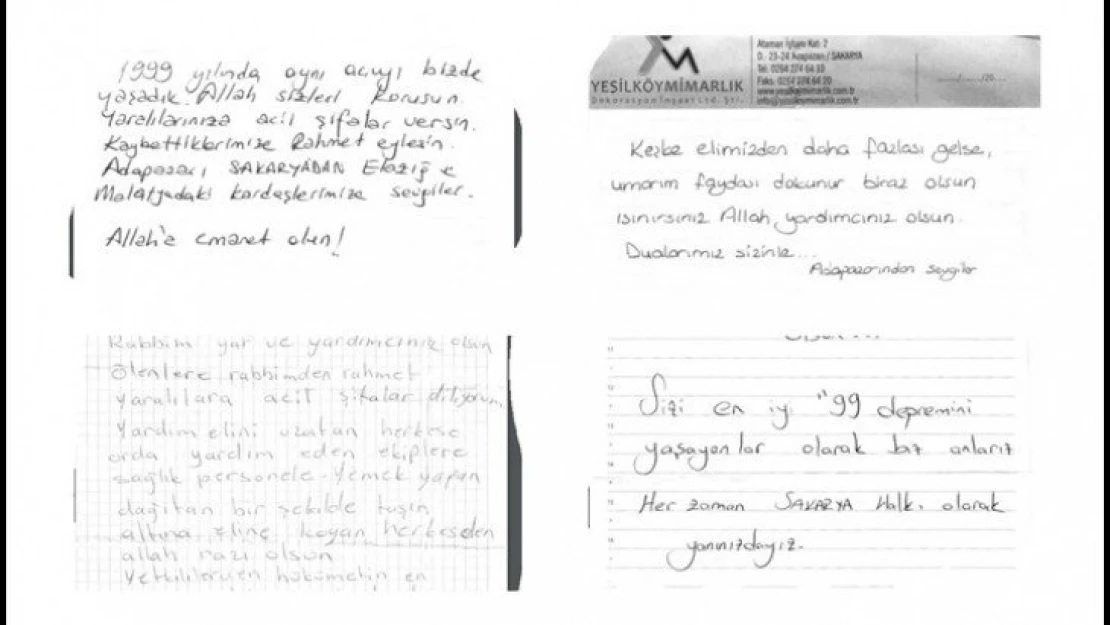 1999 yılında aynı acıyı bizde
yaşadık. Allah sizleri korusun.
Yaralılarınıza acil şifalar versin.
Kaybettiklerimize Rahmet eylesin.
Adapazarı SAKARYADAN Elazığ ve
Malatyadaki kardeşlerimize sevgiler.
Allah'a emanet olun!
YEŞİLKÖYMİMARLIK
Dekorasyon İnşaat Ltd. Şti.
Ataman İşhanı Kat: 2
D. 23-24 Adapazarı / SAKARYA
Tel: 0264 274 64 10
Faks: 0264 274 64 20
www.yesilkoymimarlik.com.tr
info@yesilkoymimarlik.com.tr
....../....../20....
Keşke elimizden daha fazlası gelse,
umarım faydası dokunur biraz olsun
ısınırsınız Allah yardımcınız olsun.
Dualarımız sizinle...
Adapazarından sevgiler
Rabbim yar ve yardımcınız olsun
Ölenlere rabbimden rahmet
yaralılara acil şifalar diliyorum
Yardım elini uzatan herkese
orda yardım eden ekiplere
sağlık personele. Yemek yapan
dağıtan bir şekilde taşın
altına eline koyan herkesden
allah razı olsun
Yetkililerden hükümetin en
Sizi en iyi "99 depremini
yaşayanlar olarak biz anlarız
Her zaman SAKARYA Halkı olarak
yanınızdayız.